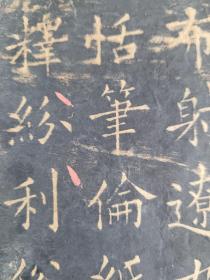 布射遼
恬筆倫紙
釋紛利俗